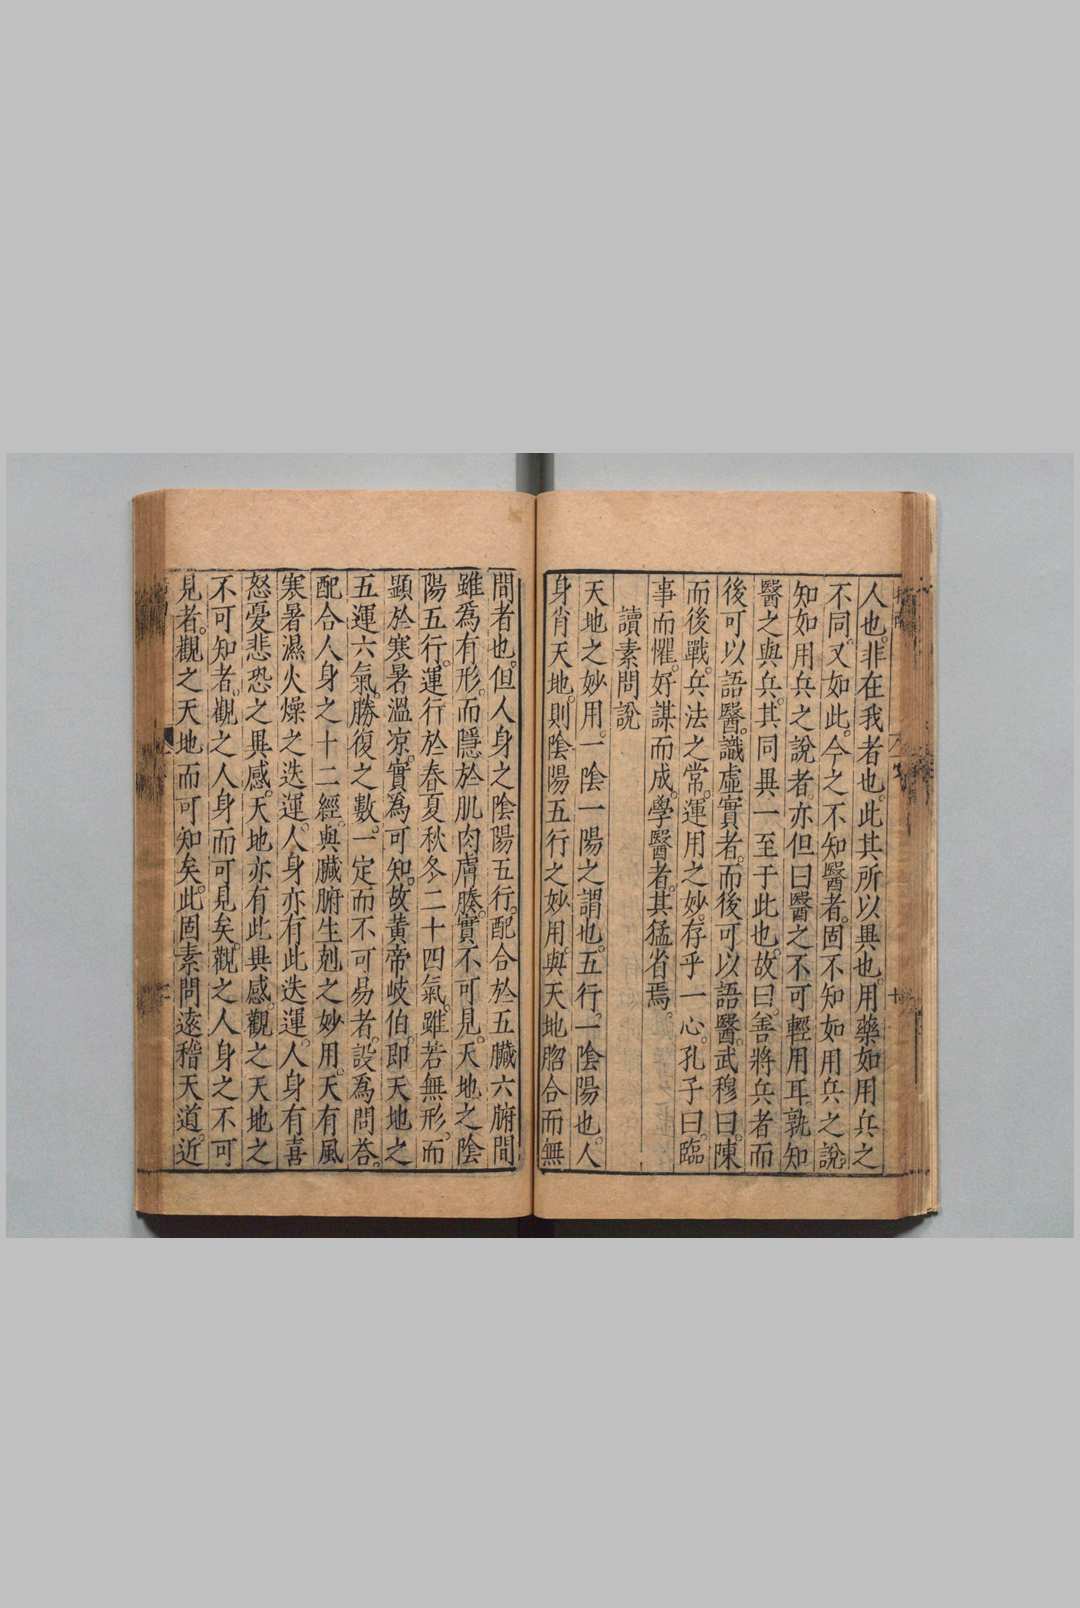 人也。非在我者也。此其所以異也。用藥如用兵之
不同。又如此。今之不知醫者。固不知如用兵之說。
知如用兵之說者。亦但曰醫之不可輕用耳。孰知
醫之與兵。其同異一至于此也。故曰。善將兵者而
後可以語醫。識虛實者。而後可以語醫。武穆曰。陳
而後戰。兵法之常。運用之妙。存乎一心。孔子曰。臨
事而懼。好謀而成。學醫者。其猛省焉。
讀素問說
天地之妙用。一陰一陽之謂也。五行。一陰陽也。人
身肖天地。則陰陽五行之妙用。與天地脗合而無
間者也。但人身之陰陽五行。配合於五臟六腑間
雖爲有形。而隱於肌肉膚腠。實不可見。天地之陰
陽五行。運行於春夏秋冬二十四氣。雖若無形。而
顯於寒暑溫凉。實爲可知。故黃帝岐伯。即天地之
五運六氣。勝復之數。一定而不可易者。設爲問荅。
配合人身之十二經。與臟腑生剋之妙用。天有風
寒暑濕火燥之迭運。人身亦有此迭運。人身有喜
怒憂悲恐之異感。天地亦有此異感。觀之天地之
不可知者。觀之人身而可見矣。觀之人身之不可
見者。觀之天地而可知矣。此固素問遠稽天道。近